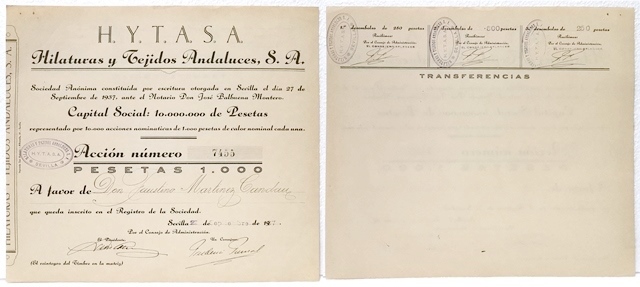 H.Y.T.A.S.A.
Hilaturas y Tejidos Andaluces, S. A.
Sociedad Anónima constituida por escritura otorgada en Sevilla el día 27 de
Septiembre de 1937, ante el Notario Don José Balbuena Montero.
Capital Social: 10.000.000 de Pesetas
representado por 10.000 acciones nominativas de 1.000 pesetas de valor nominal cada una.
Acción número 7455
PESETAS 1.000
A favor de Don Martinez
que queda inscrito en el Registro de la Sociedad.
Sevilla de de 19
Por el Consejo de Administración,
El Presidente, Un Consejero,
(El reintegro del Timbre en la matriz)
HILATURAS Y TEJIDOS ANDALUCES, S. A.
HYTASA
SEVILLA
desembolso de 250 pesetas
Recibimos:
Por el Consejo de Administración,
desembolso de pesetas
Recibimos:
Por el Consejo de Administración,
desembolso de pesetas
Recibimos:
Por el Consejo de Administración,
TRANSFERENCIAS